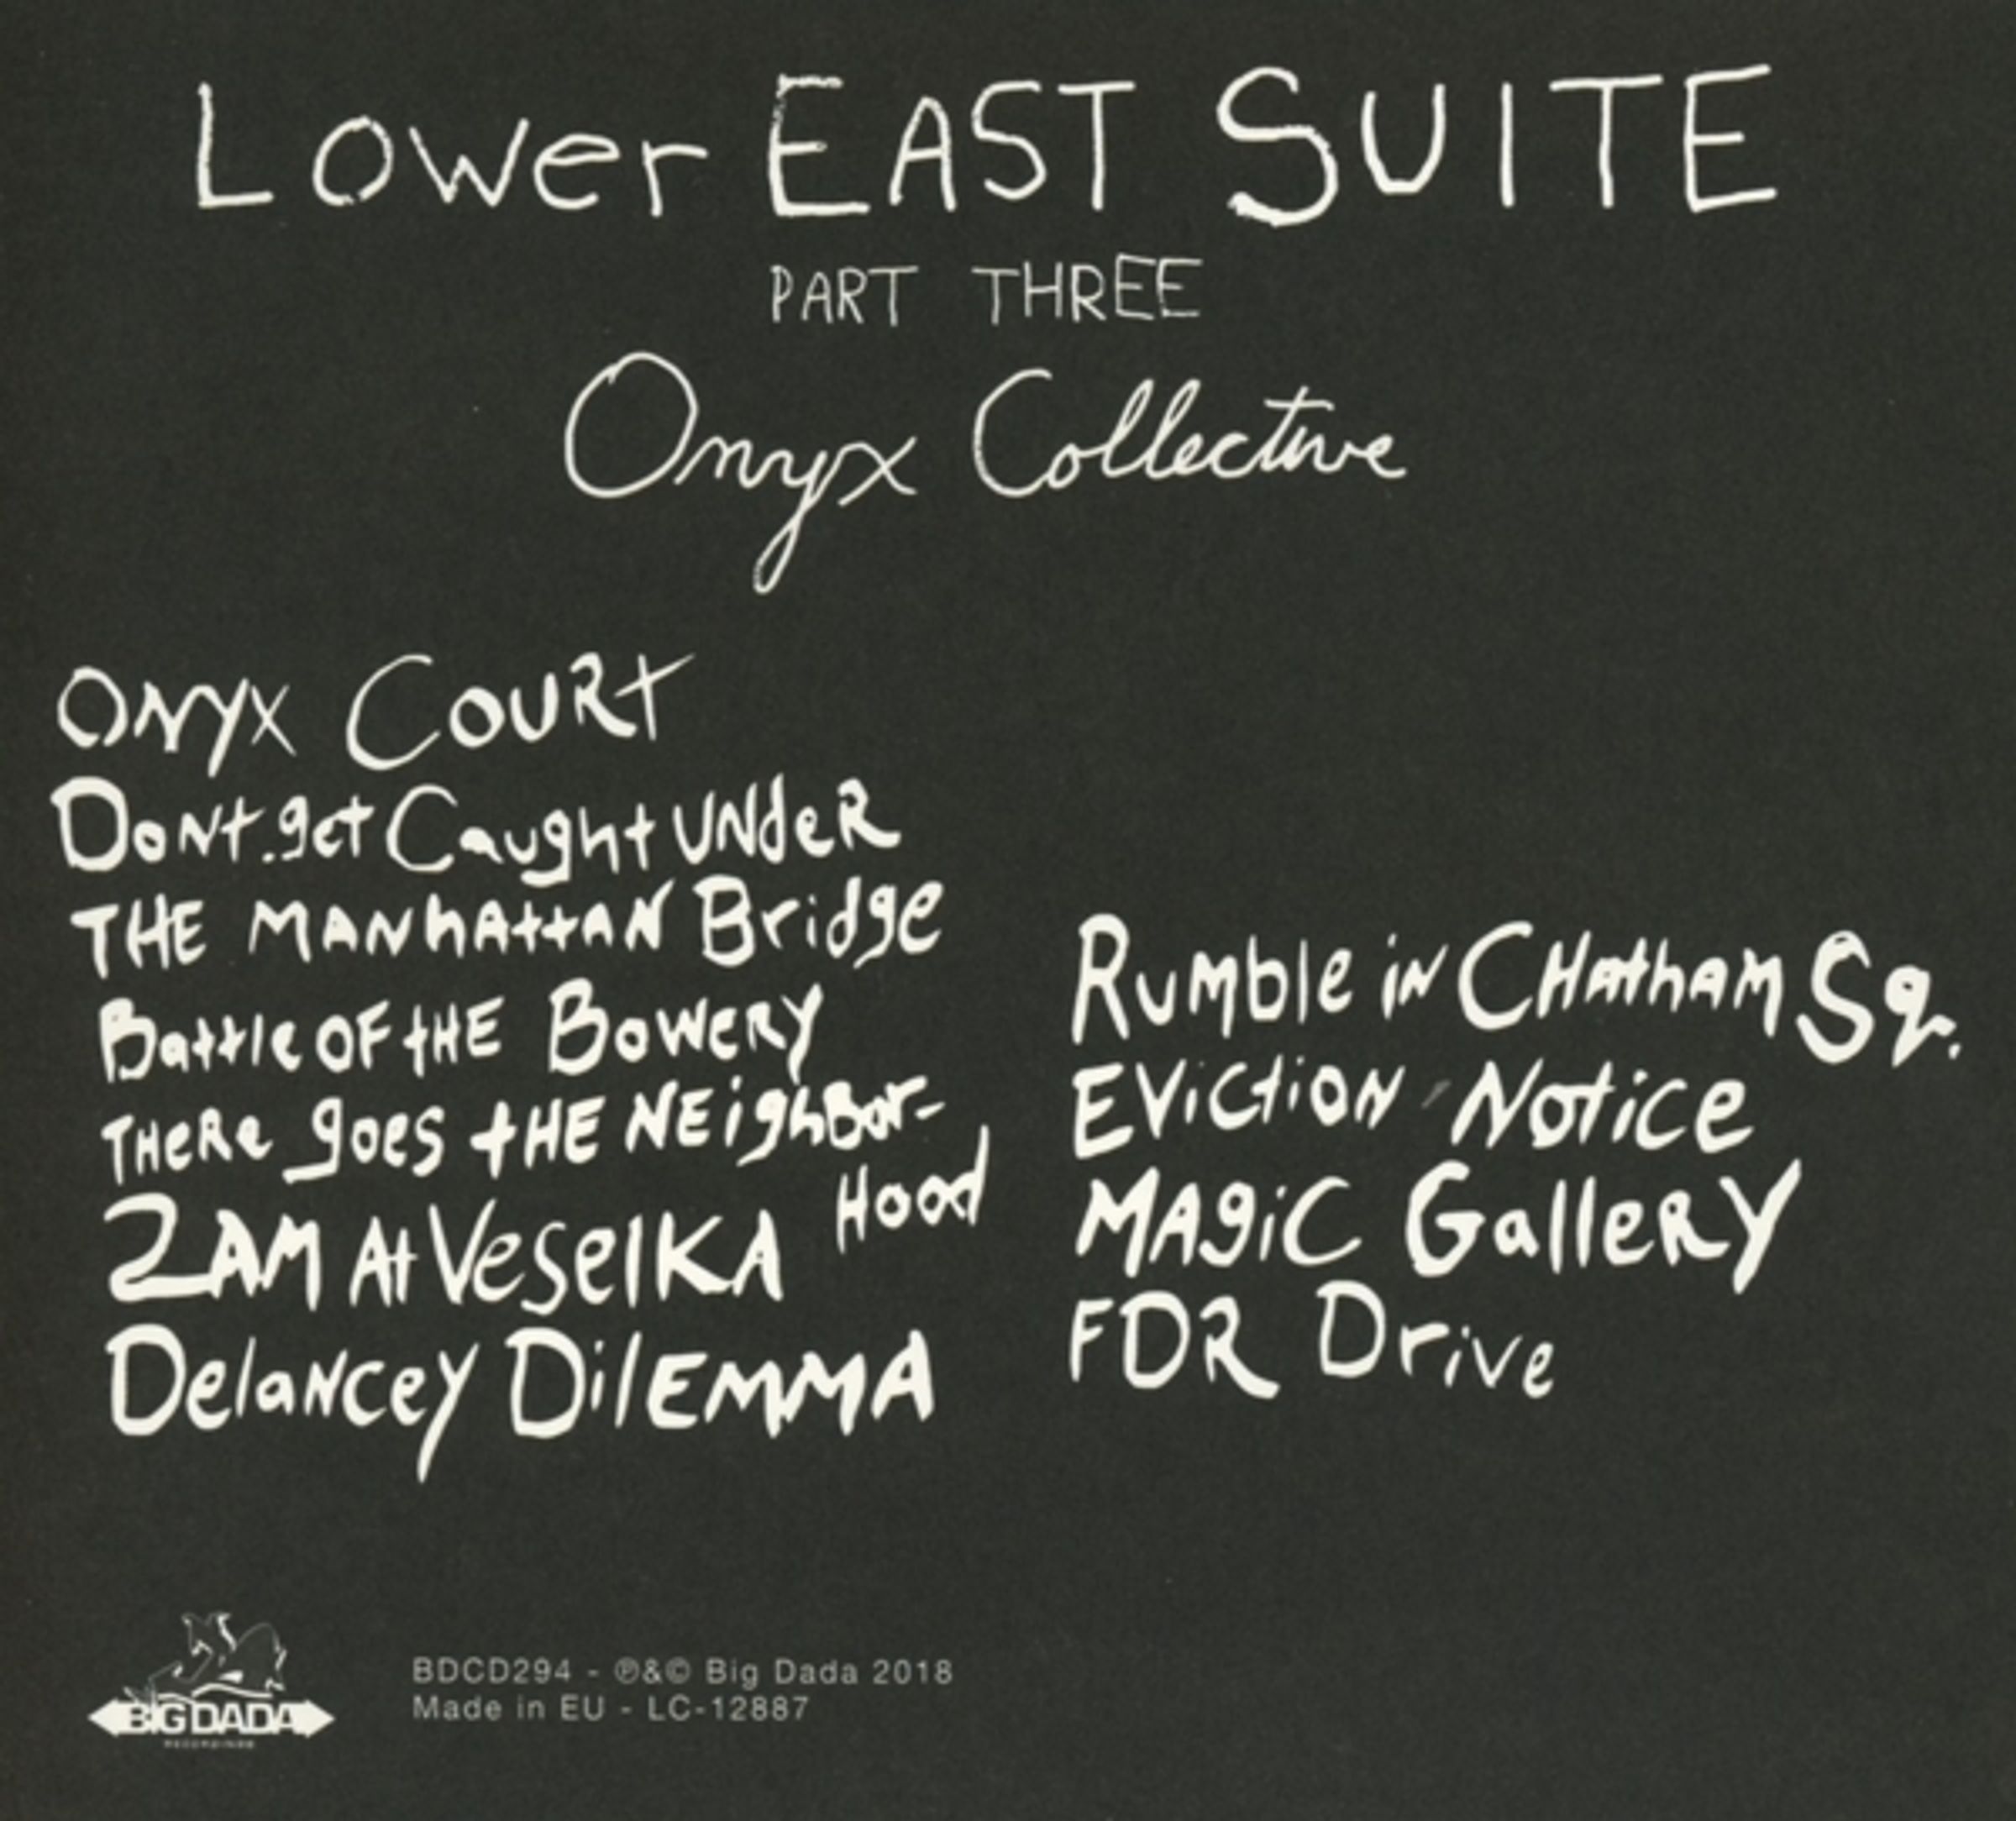 Lower EAST SUITE
PART THREE
Onyx Collective
ONYX COURt
DoNt.get Caught UNdeR
THE MANhAttAN Bridge
Battle OF tHE BoWeRY
THeRe goes tHE NEighBor-
Hood
2AM At VeselKA
DelaNcey DilEMMA
Rumble iN CHatham Sq.
EViCtiON Notice
MAgiC GalleRY
FDR Drive
BIG DADA
RECORDINGS
BDCD294 - ℗&© Big Dada 2018
Made in EU - LC-12887